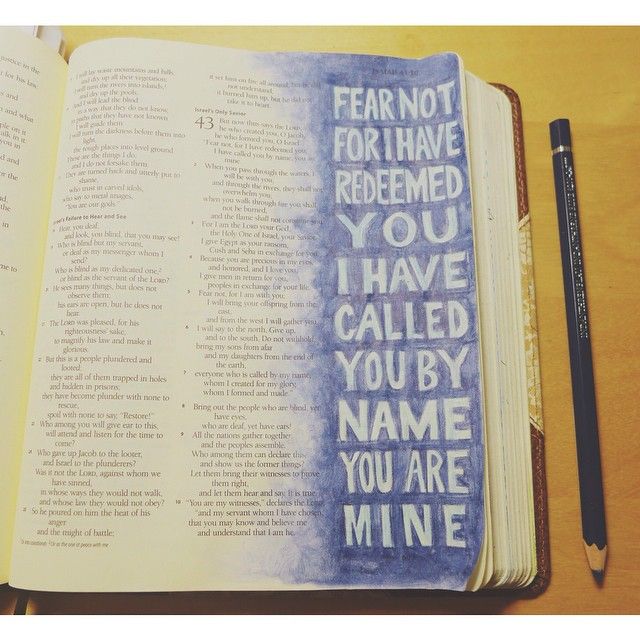 I will lay waste mountains and hills,
and dry up all their vegetation;
I will turn the rivers into islands,
and dry up the pools.
And I will lead the blind
in a way that they do not know,
in paths that they have not known
I will guide them.
I will turn the darkness before them into
light,
the rough places into level ground.
These are the things I do,
and I do not forsake them.
They are turned back and utterly put to
shame,
who trust in carved idols,
who say to metal images,
"You are our gods."
Israel's Failure to Hear and See
Hear, you deaf,
and look, you blind, that you may see!
Who is blind but my servant,
or deaf as my messenger whom I
send?
Who is blind as my dedicated one,
or blind as the servant of the LORD?
He sees many things, but does not
observe them;
his ears are open, but he does not
hear.
The LORD was pleased, for his
righteousness' sake,
to magnify his law and make it
glorious.
But this is a people plundered and
looted;
they are all of them trapped in holes
and hidden in prisons;
they have become plunder with none to
rescue,
spoil with none to say, "Restore!"
Who among you will give ear to this,
will attend and listen for the time to
come?
Who gave up Jacob to the looter,
and Israel to the plunderers?
Was it not the LORD, against whom we
have sinned,
in whose ways they would not walk,
and whose law they would not obey?
So he poured on him the heat of his
anger
and the might of battle;
it set him on fire all around, but he did
not understand;
it burned him up, but he did not
take it to heart.
Israel's Only Savior
43 But now thus says the LORD,
he who created you, O Jacob,
he who formed you, O Israel:
"Fear not, for I have redeemed you;
I have called you by name, you are
mine.
2 When you pass through the waters, I
will be with you;
and through the rivers, they shall not
overwhelm you;
when you walk through fire you shall
not be burned,
and the flame shall not consume you.
3 For I am the LORD your God,
the Holy One of Israel, your Savior.
I give Egypt as your ransom,
Cush and Seba in exchange for you.
4 Because you are precious in my eyes,
and honored, and I love you,
I give men in return for you,
peoples in exchange for your life.
5 Fear not, for I am with you;
I will bring your offspring from the
east,
and from the west I will gather you.
6 I will say to the north, Give up,
and to the south, Do not withhold;
bring my sons from afar
and my daughters from the end of
the earth,
7 everyone who is called by my name,
whom I created for my glory,
whom I formed and made."
8 Bring out the people who are blind, yet
have eyes,
who are deaf, yet have ears!
9 All the nations gather together,
and the peoples assemble.
Who among them can declare this,
and show us the former things?
Let them bring their witnesses to prove
them right,
and let them hear and say, It is true.
10 "You are my witnesses," declares the LORD,
"and my servant whom I have chosen,
that you may know and believe me
and understand that I am he.
FEAR NOT
FOR I HAVE
REDEEMED
YOU
I HAVE
CALLED
YOU BY
NAME
YOU ARE
MINE